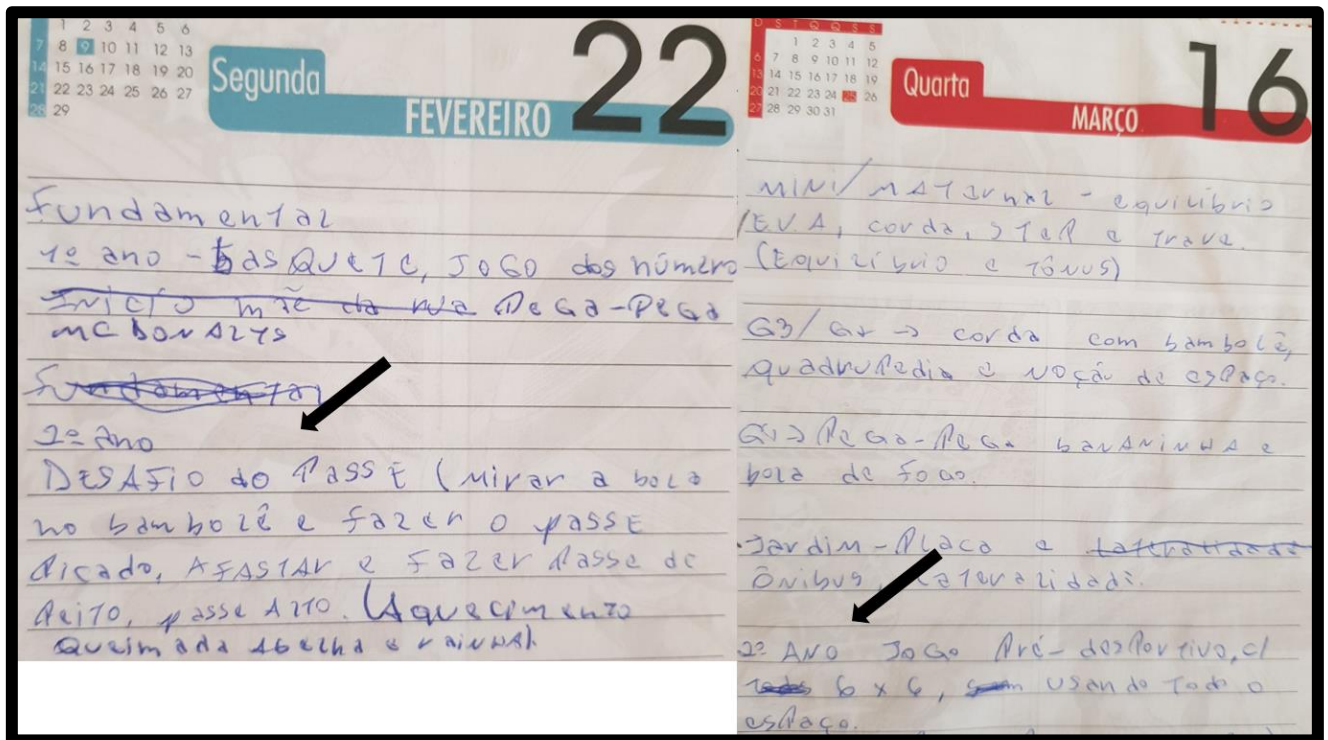 1 2 3 4 5 6
7 8 9 10 11 12 13
14 15 16 17 18 19 20
21 22 23 24 25 26 27
28 29
Segunda
FEVEREIRO
22
Fundamental
1º ano - basquete, jogo dos número
Início mãe da rua Pega-Pega
Mc Donalys
Fundamental
2º ano
Desafio do Passe (mirar a bola
no bambolê e fazer o passe
picado, afastar e fazer passe de
peito, passe alto. (Aquecimento
queimada abelha e rainha).
D S T Q Q S S
1 2 3 4 5
6 7 8 9 10 11 12
13 14 15 16 17 18 19
20 21 22 23 24 25 26
27 28 29 30 31
Quarta
MARÇO
16
Mini/Maternal - equilíbrio
E.V.A, corda, step e trave.
(Equilíbrio e tônus)
G3/G4 → corda com bambolê,
quadrupedia e noção de espaço.
→ Pega-Pega bananinha e
bola de fogo.
Jardim - Placa e lateralidade
Ônibus, lateralidade.
2º Ano Jogo Pré-desportivo, c/
6 x 6, usando todo o
espaço.